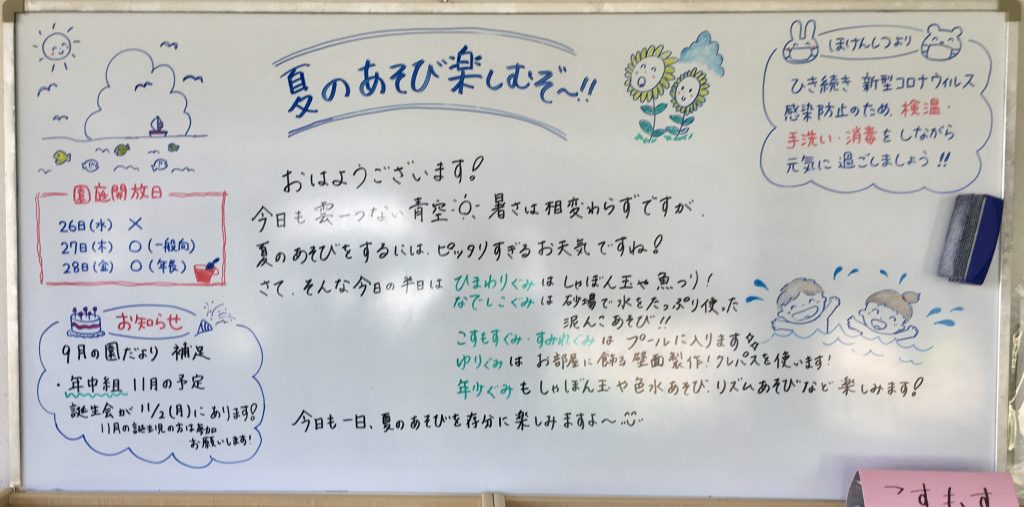 夏のあそび楽しむぞ〜!!
ほけんしつより
ひき続き 新型コロナウィルス
感染防止のため、検温・
手洗い・消毒をしながら
元気に過ごしましょう!!
園庭開放日
26日(水) ×
27日(木) ○(一般向)
28日(金) ○(年長)
お知らせ
9月の園だより 補足
・年中組 11月の予定
誕生会が 11/2(月)にあります!
11月の誕生児の方は参加
お願いします!
おはようございます!
今日も雲一つない青空 暑さは相変わらずですが、
夏のあそびをするには、ピッタリすぎるお天気ですね!
さて、そんな今日の半日は ひまわりぐみは しゃぼん玉や魚つり!
なでしこぐみは 砂場で水をたっぷり使った
泥んこあそび!!
こすもすぐみ・すみれぐみは プールに入ります
ゆりぐみは お部屋に飾る壁面製作!クレパスを使います!
年少ぐみもしゃぼん玉や色水あそび、リズムあそびなど楽しみます!
今日も一日、夏のあそびを存分に楽しみますよ〜
こすもす